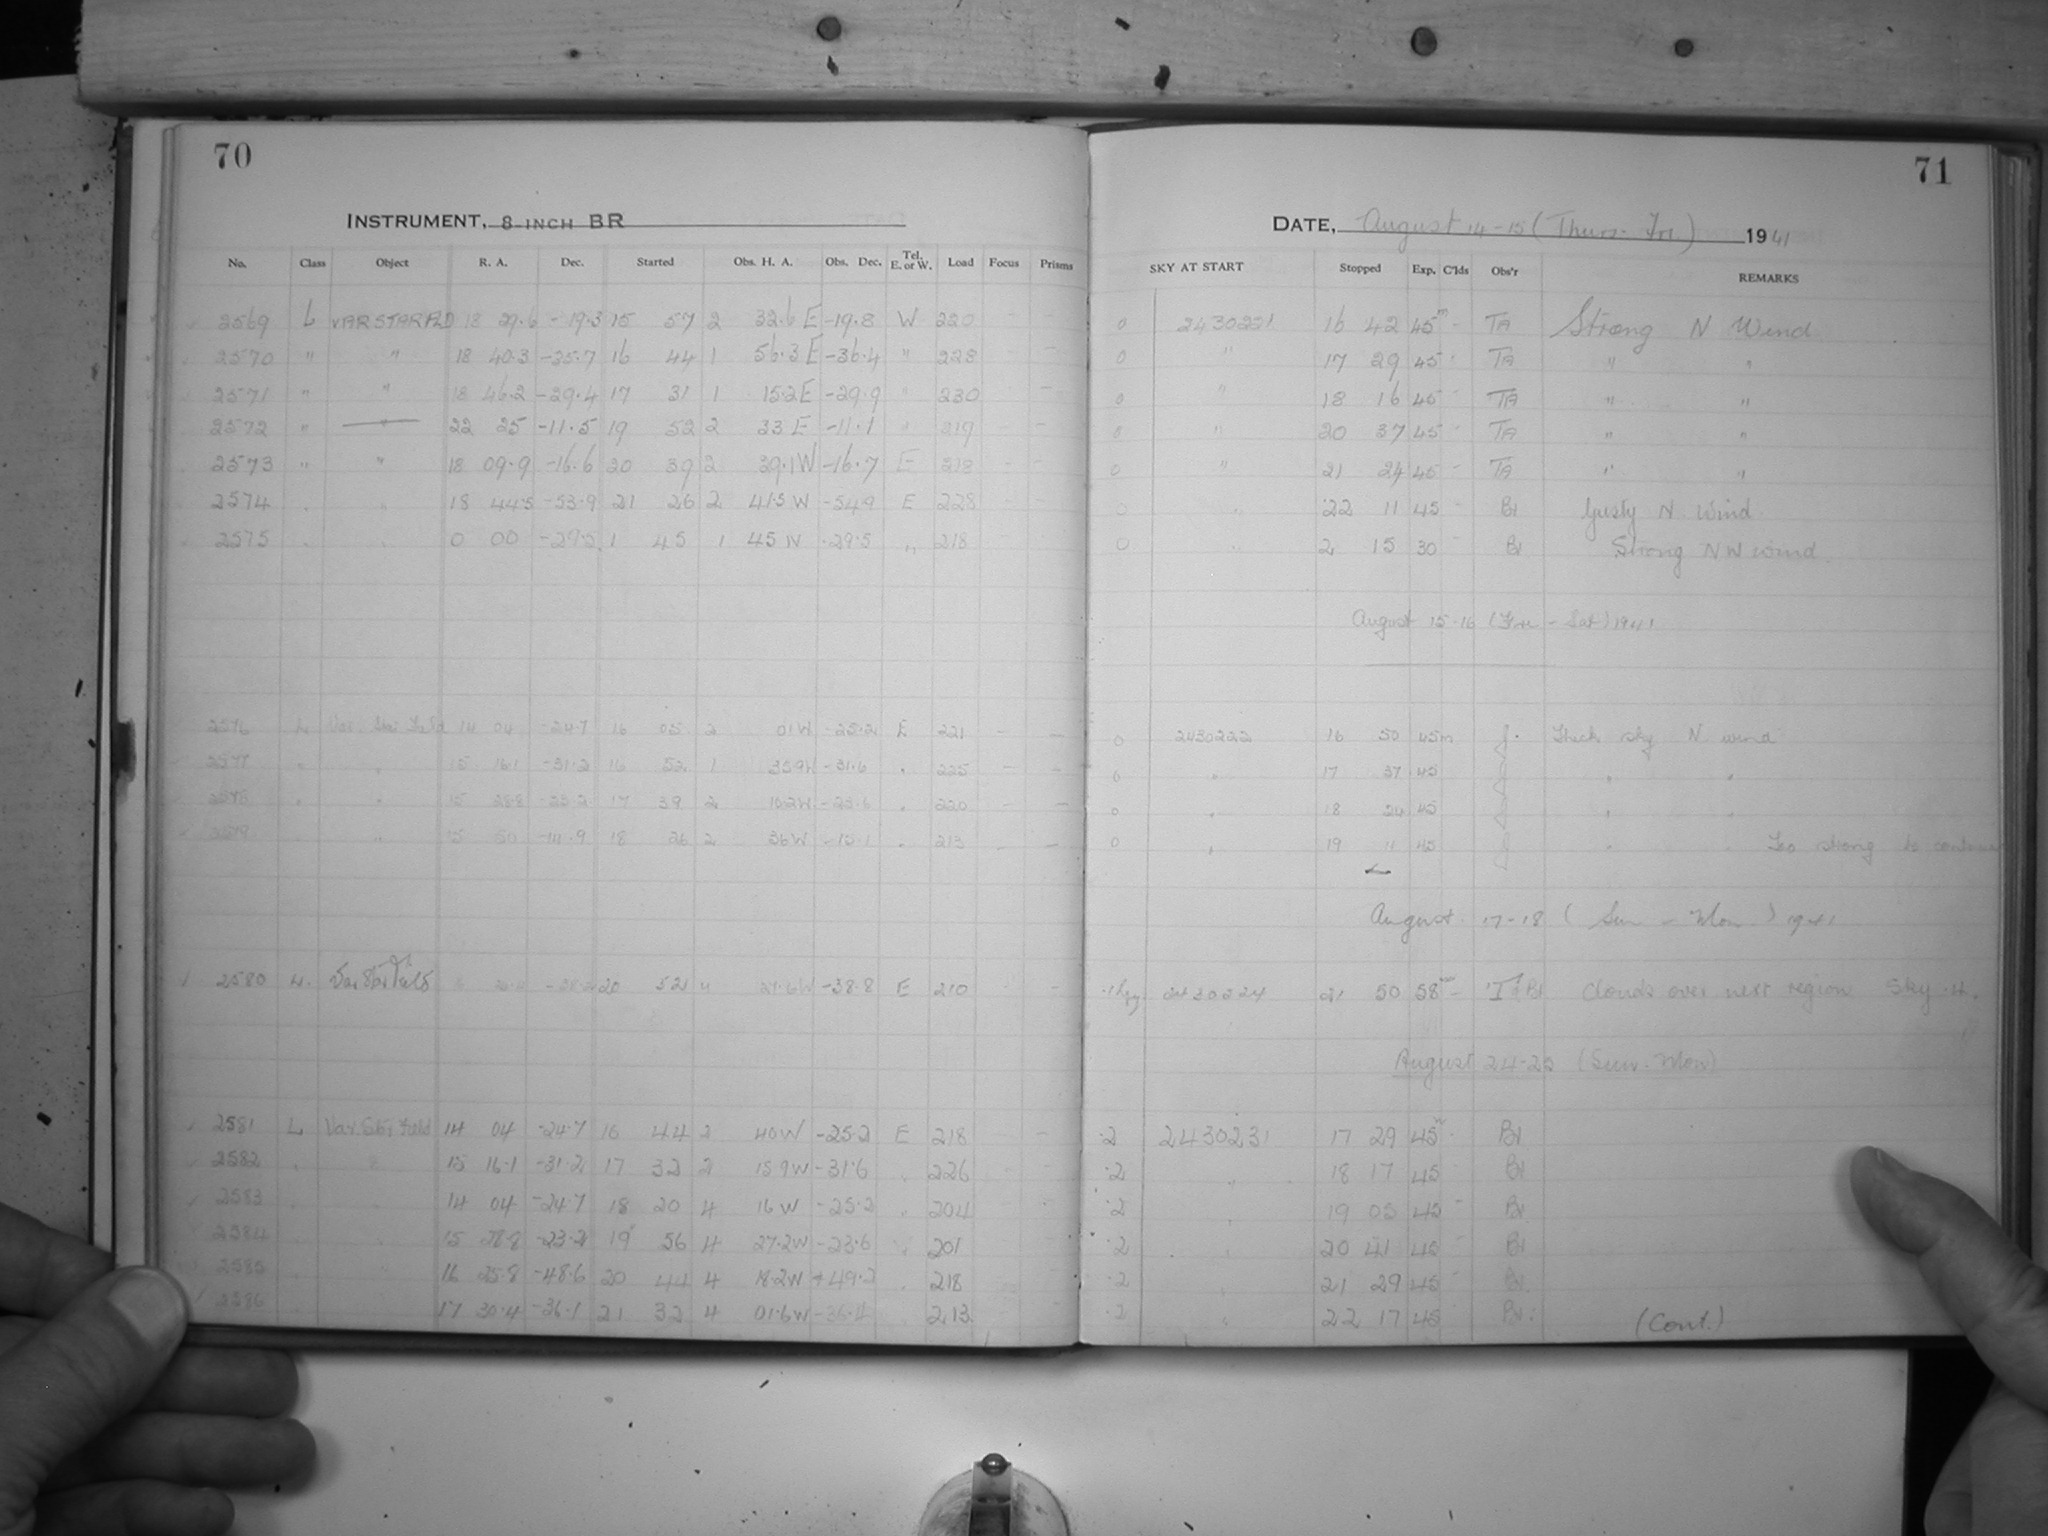 70
INSTRUMENT, 8-INCH BR
No. Class Object R. A. Dec. Started Obs. H. A. Obs. Dec. Tel. E. or W. Load Focus Prisms
2569 L VAR STAR FLD 18 29.6 -19.3 15 57 2 32.6 E -19.8 W 220
2570 " " 18 40.3 -35.7 16 44 1 56.3 E -36.4 " 228
2571 " " 18 46.2 -29.4 17 31 1 15.2 E -29.9 " 230
2572 " " 22 25 -11.5 19 52 2 33 E -11.1 " 219
2573 " " 18 09.9 -16.6 20 39 2 39.1 W -16.7 E 218
2574 18 44.5 -53.9 21 26 2 41.5 W -54.9 E 228
2575 0 00 -29.5 1 45 1 45 W -29.5 " 218
2576 L Var. Star Field 14 04 -24.7 16 05 2 01 W -25.2 E 221
2577 15 16.1 -31.2 16 52 1 35.9 W -31.6 225
2578 15 28.8 -23.2 17 39 2 10.2 W -23.6 220
2579 15 50 -14.9 18 26 2 36 W -15.1 213
2580 L. Var Star Field 20 52 -38.8 E 210
2581 L Var. Star Field 14 04 -24.7 16 44 2 40 W -25.2 E 218
2582 15 16.1 -31.2 17 32 2 15.9 W -31.6 226
2583 14 04 -24.7 18 20 4 16 W -25.2 204
2584 15 28.8 -23.2 19 56 4 27.2 W -23.6 201
2585 16 25.8 -48.6 20 44 4 18.2 W -49.2 218
2586 17 30.4 -36.1 21 32 4 01.6 W -36.4 213
71
DATE, August 14-15 (Thurs-Fri.) 1941
SKY AT START Stopped Exp. C'lds Obs'r REMARKS
0 2430221 16 42 45m - TA Strong N Wind
0 " 17 29 45 TA " "
0 " 18 16 45 - TA " "
0 " 20 37 45 TA " "
0 " 21 24 45 - TA " "
0 " 22 11 45 - Bl Gusty N. Wind
0 " 2 15 30 - Bl Strong NW wind
August 15-16 (Fri-Sat) 1941
0 2430222 16 50 45m J. Thick sky N. wind
0 " 17 37 45 " "
0 " 18 24 45 " "
0 " 19 11 45 " " Too strong to continue
August 17-18 (Sun-Mon) 1941
2430224 21 50 58m - Bl Clouds over next region Sky .4.
August 24-25 (Sun-Mon)
.2 2430231 17 29 45m Bl
.2 " 18 17 45 Bl
.2 " 19 05 45 - Bl
.2 " 20 41 45 - Bl
.2 " 21 29 45 - Bl
.2 " 22 17 45 - Bl.
(Cont.)